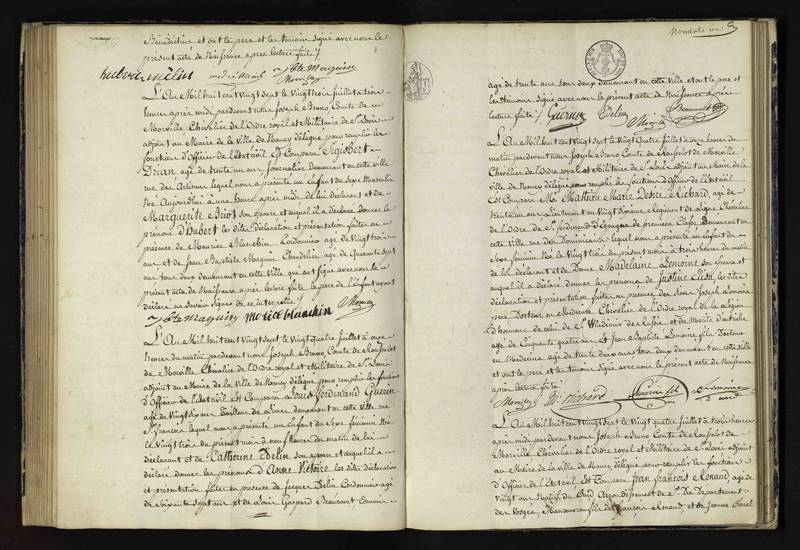 Bénédictin et ont le pere et les temoins signé avec nous le
présent acte de Naissance après lecture faite /.
hubert mélin jbte Maguin
Morville
L'An Mil huit cent vingt sept le Vingt trois juillet a trois
heures après midi pardevant nous Joseph Bruno Comte de
Morville, Chevalier de l'Ordre royal et Militaire de St. Louis
adjoint au Maire de la Ville de Nancy délégué pour remplir les
fonctions d'Officier de l'Etat civil Est Comparu Sigisbert
Drian agé de trente un ans Journalier demeurant en cette ville
rue des Artisans lequel nous a présenté un Enfant du Sexe Masculin
Né Aujourd'hui a une heure après midi de lui déclarant et de
Marguerite Briot son épouse et auquel il a déclaré donner le
prénom d'Hubert les dites Déclaration et présentation faites en
présence de Maurice Blanchin Cordonnier agé de Vingt trois
ans et de Jean Baptiste Maguin Chandelier agé de Quarante sept
ans tous deux demeurant en cette Ville qui ont signé avec nous le
présent acte de Naissance après lecture faite le pere de l'Enfant ayant
déclaré ne savoir signer de ce interpellé /.
jbte maguin morice blanchin Morville
L'An Mil huit cent Vingt sept le Vingt quatre juillet a onze
heures du matin pardevant nous Joseph Bruno Comte de Rouselot
de Morville Chevalier de l'Ordre royal et Militaire de St. Louis
adjoint au Maire de la Ville de Nancy délégué pour remplir les fonctions
d'Officier de l'Etat civil Est Comparu Louis ferdinand Guerin
agé de Vingt ans Tailleur de Pierre demeurant en cette ville rue
St. françois lequel nous a présenté un Enfant du Sexe féminin Né
le Vingt trois du présent mois a neuf heures du matin de lui
déclarant et de Catherine Delin son épouse et auquel il a
déclaré donner les prénoms d'Anne Victoire les dites Déclaration
et présentation faites en présence de Jacques Delin Cordonnier agé
de soixante sept ans et de Louis Gaspard Beaucourt
agé de trente ans tous deux demeurant en cette Ville et ont le pere et
les temoins signé avec nous le présent acte de Naissance après
lecture faite /. Guerin Delin
Morville
L'An Mil huit cent Vingt sept le Vingt quatre juillet a onze heures du
matin pardevant nous Joseph Bruno Comte de Rouselot de Morville
Chevalier de l'Ordre royal et Militaire de St. Louis adjoint au Maire de la
Ville de Nancy délégué pour remplir les fonctions d'Officier de l'Etat civil
Est Comparu Mr. Mathieu Marie Desiré Richard, agé de
trente ans Lieutenant au Vingt Régiment de Ligne Chevalier
de l'Ordre de St. ferdinand d'Espagne de premiere Classe Demeurant en
cette Ville rue des Dominicains lequel nous a présenté un Enfant du
Sexe féminin Né le Vingt trois du présent mois a trois heures du matin
de lui déclarant et de Dame Madelaine Lemoine son épouse et
auquel il a déclaré donner les prenoms de Justine Elisa les dites
déclaration et présentation faites en présence des Sieurs Joseph Lemoine
pere Docteur en Medecine Chevalier de l'Ordre royal de la Légion
d'honneur de celui de St. Wladimir de Russie
agé de Cinquante quatre ans et Jean Baptiste Lemoine fils Docteur
en Medecine agé de trente deux ans tous deux demeurant en cette ville
et ont le pere et les temoins signé avec nous le présent acte de Naissance
après lecture faite /.
Morville Richard Lemoine
L'An Mil huit cent Vingt sept le Vingt quatre juillet a trois heures
après midi pardevant nous Joseph Bruno Comte de Rouselot de
Morville Chevalier de l'Ordre royal et Militaire de St. Louis adjoint
au Maire de la Ville de Nancy délégué pour remplir les fonctions
d'Officier de l'Etat civil Est Comparu Jean françois Renaud, agé de
Vingt ans Natif du Arrondissement de St. Dié Departement
des Vosges, Manoeuvre, fils de françois Renaud et de Jeanne